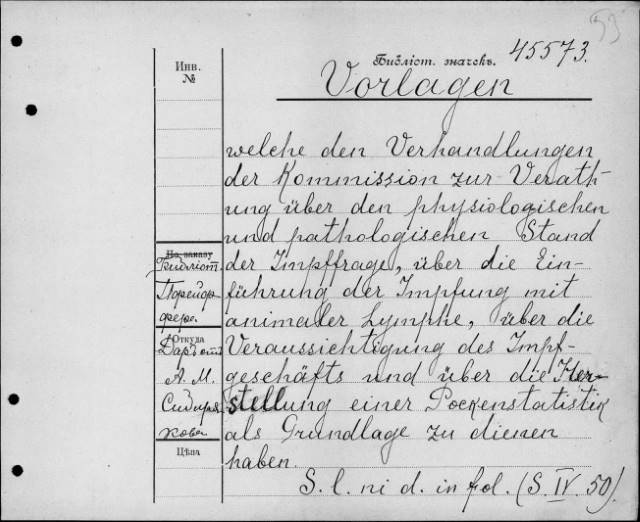 53
Библіот. значекъ. 45573.
Инв.
№
Vorlagen
welche den Verhandlungen
der Kommission zur Verath-
ung über den physiologischen
und pathologischen Stand
der Impffrage, über die Ein-
führung der Impfung mit
animaler Lymphe, über die
Veraussichtigung des Impf-
geschäfts und über die Her-
stellung einer Pockenstatistik
als Grundlage zu dienen
haben.
S. l. ni d. in fol. (S. IV. 50).
По заказу
Откуда
Даръ отъ
А. М.
Сидоря-
кова
Цѣна